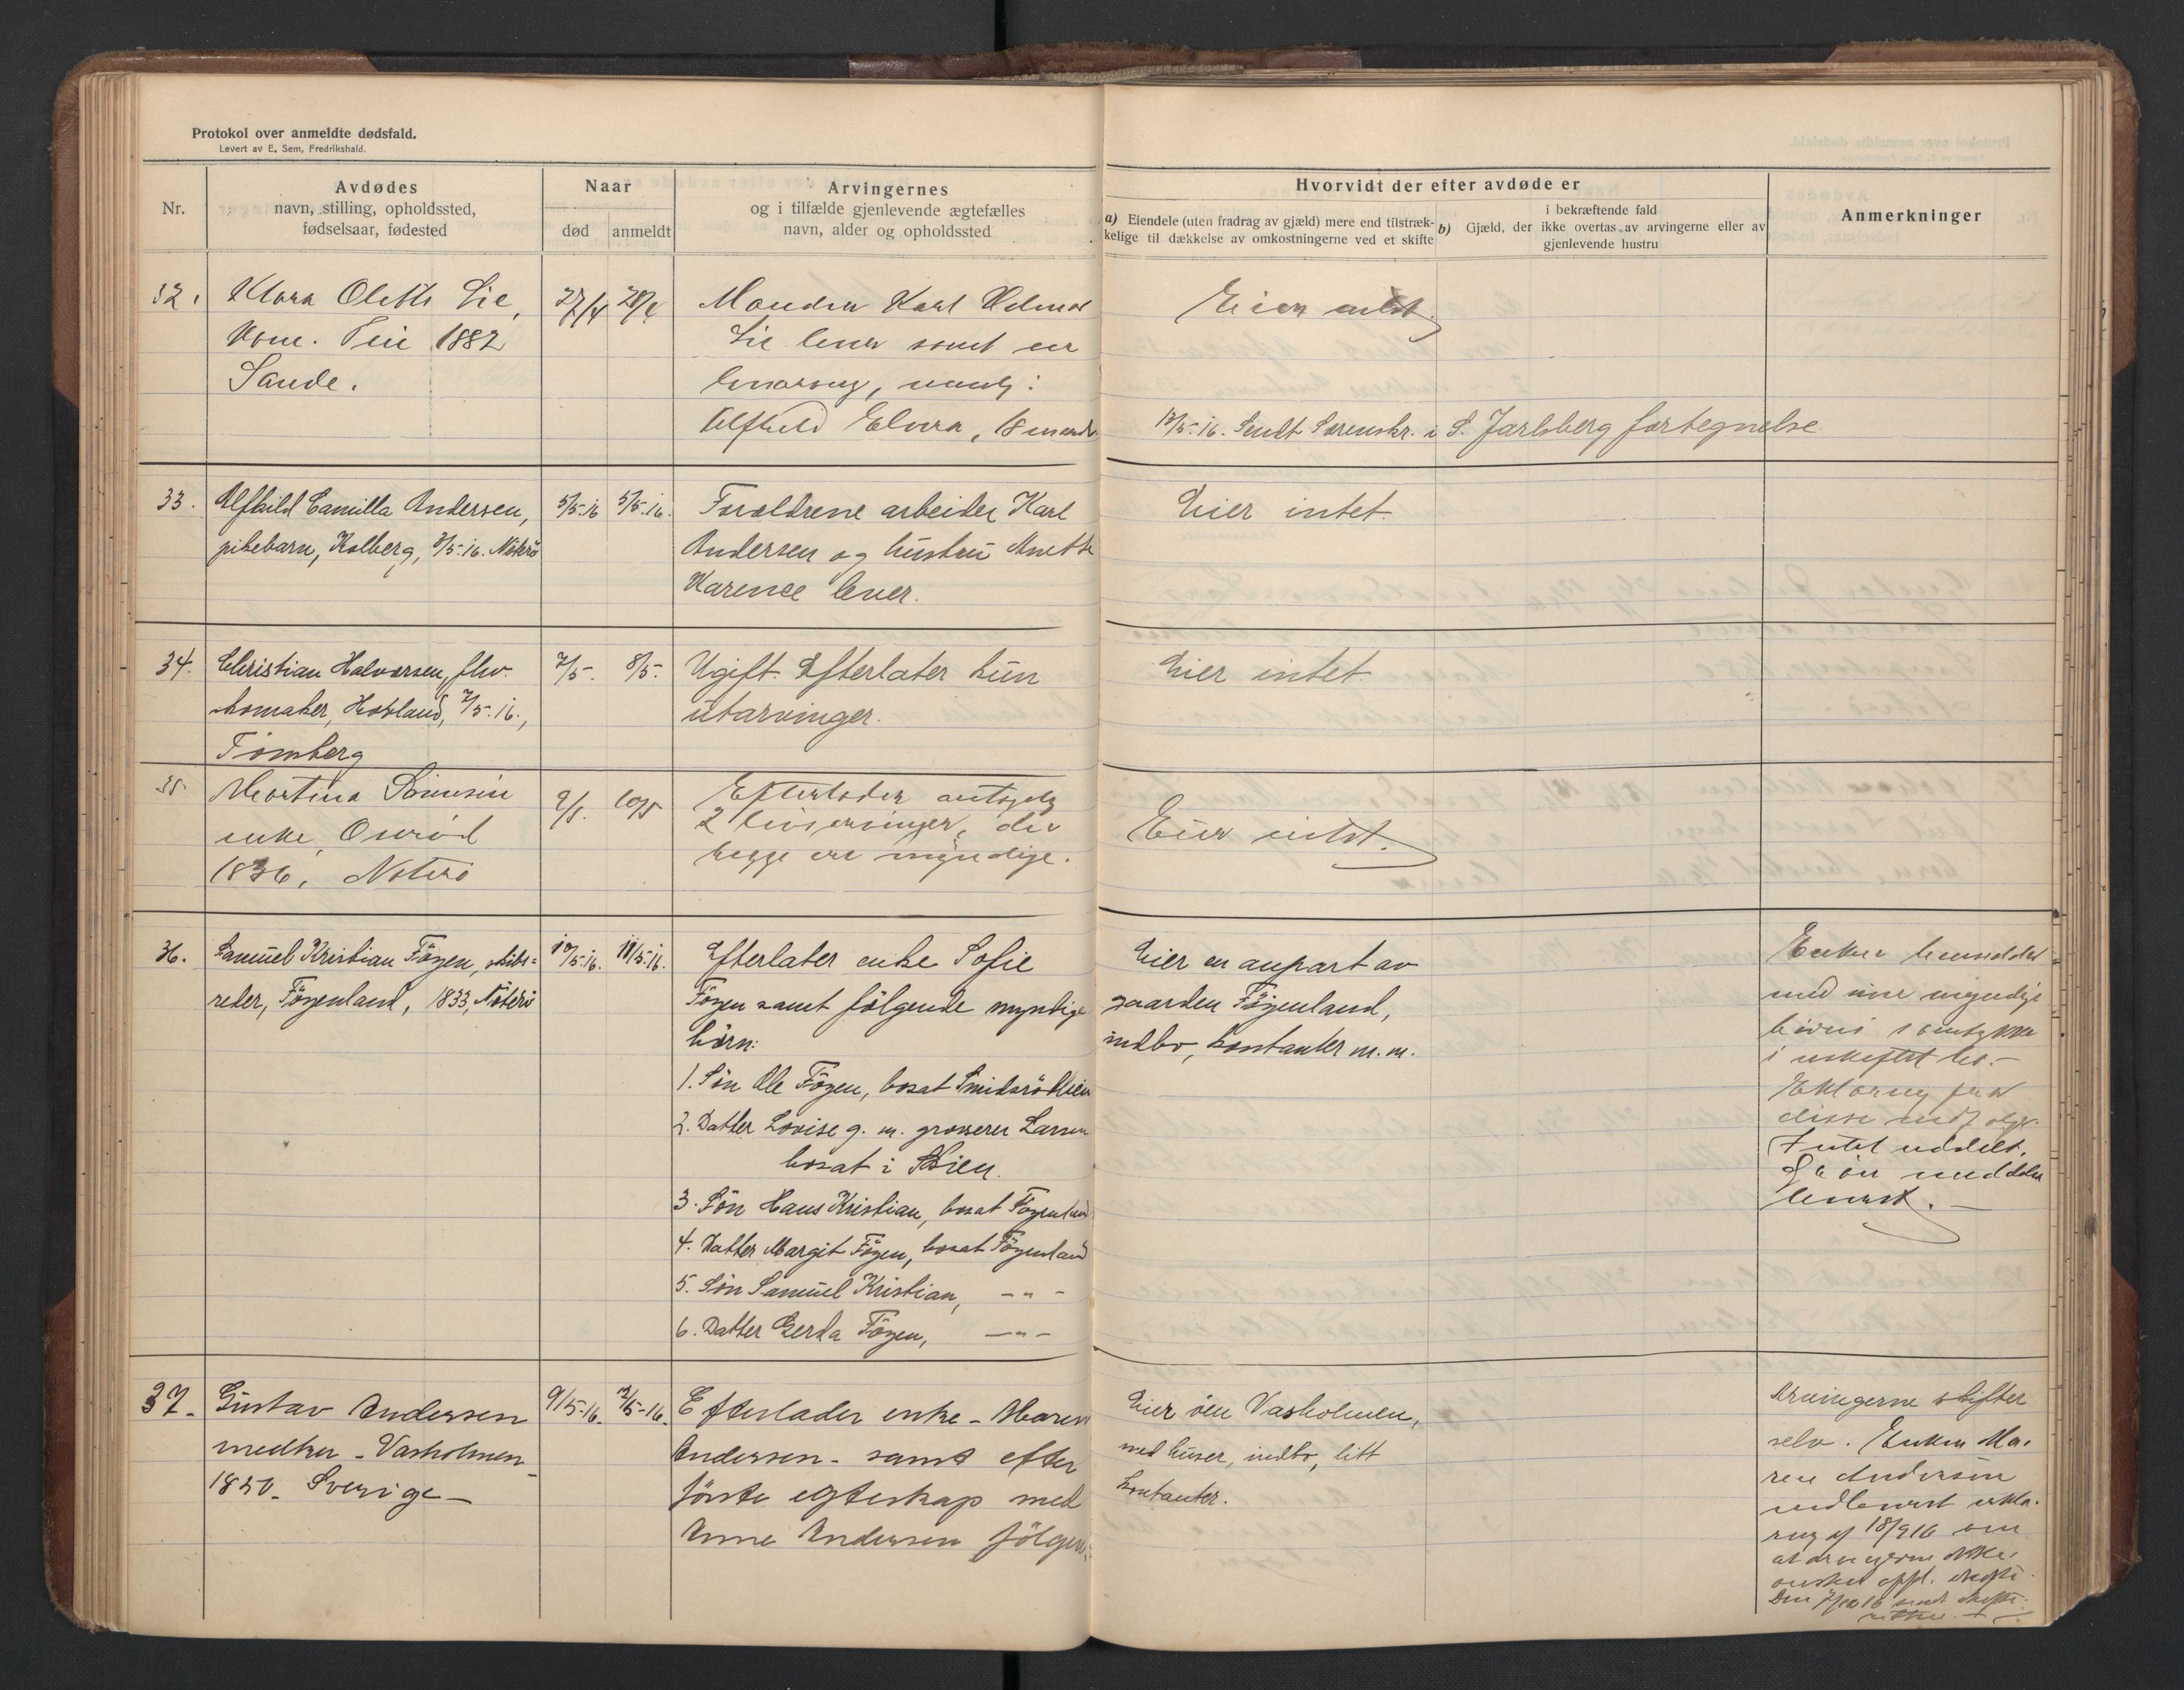 Protokol over anmeldte dødsfald.
Levert av E. Sem, Fredrikshald.
Nr.
Avdødes
navn, stilling, opholdssted,
fødselsaar, fødested
Naar
død
anmeldt
Arvingernes
og i tilfælde gjenlevende ægtefælles
navn, alder og opholdssted
Hvorvidt der efter avdøde er
a) Eiendele (uten fradrag av gjæld) mere end tilstræk-
kelige til dækkelse av omkostningerne ved et skifte
i bekræftende fald
b) Gjæld, der ikke overtas av arvingerne eller av
gjenlevende hustru
Anmerkninger
32.
Klara Olette Lie,
1882
Sande.
27/4
28/4
Manden Karl
Lie lever samt en
livsarving, nemlig:
Alfhild Elvira, 18 mndr.
Eier intet.
12/5-16. Sendt Sorenskr. i S. Jarlsberg fortegnelse
33.
Alfhild Camilla Andersen,
pikebarn, Kolberg, 3/5-16. Nøterø
5/5-16
5/5-16.
Forældrene arbeider Karl
Andersen og hustru Anette
Karence lever.
Eier intet.
34.
Christian Halvorsen, fhv.
skomaker, Hovland, 7/5-16.,
Tømsberg
7/5-.
8/5-.
Ugift. Efterlater kun
utarvinger.
Eier intet.
35
Martina Sørensen
enke,
1836, Nøterø
9/5.
10/5
Efterlader antagelig
2 livsarvinger, der
begge er myndige.
Eier intet.
36.
Samuel Kristian Föyen, skibs=
reder, Föyenland, 1833, Nöterö
10/5-16.
11/5-16.
Efterlater enke Sofie
Föyen samt fölgende myndige
börn:
1. Sön Ole Föyen, bosat Smidsrödveien
2. Datter Lovise g. m. grosserer Larsen
bosat i Skien.
3. Sön Haus Kristian, bosat Föyenland
4. Datter Margit Föyen, bosat Föyenland
5. Sön Samuel Kristian, - " -
6. Datter Gerda Föyen, - " -
Eier en anpart av
gaarden Föyenland,
indbo, kontanter m. m.
Enken hensidder
med sine myndige
børns samtykke
i uskiftet bo.-
Erklæring fra
disse
Intet uddelt.
37.
Gustav Andersen
medker - Vasholmen -
1850. Sverige -
9/5-16.
12/5-16.
Efterlader enke - Maren
Andersen - samt efter
förste egteskap med
Anne Andersen fölgen:
Eier öen Vasholmen,
med huser, indbo, litt
kontanter.
Arvingerne skifter
selv. Enken Ma-
ren Andersen
indlevert erklæ-
ring af 18/9 16 om
at arvingerne ikke
ønsker